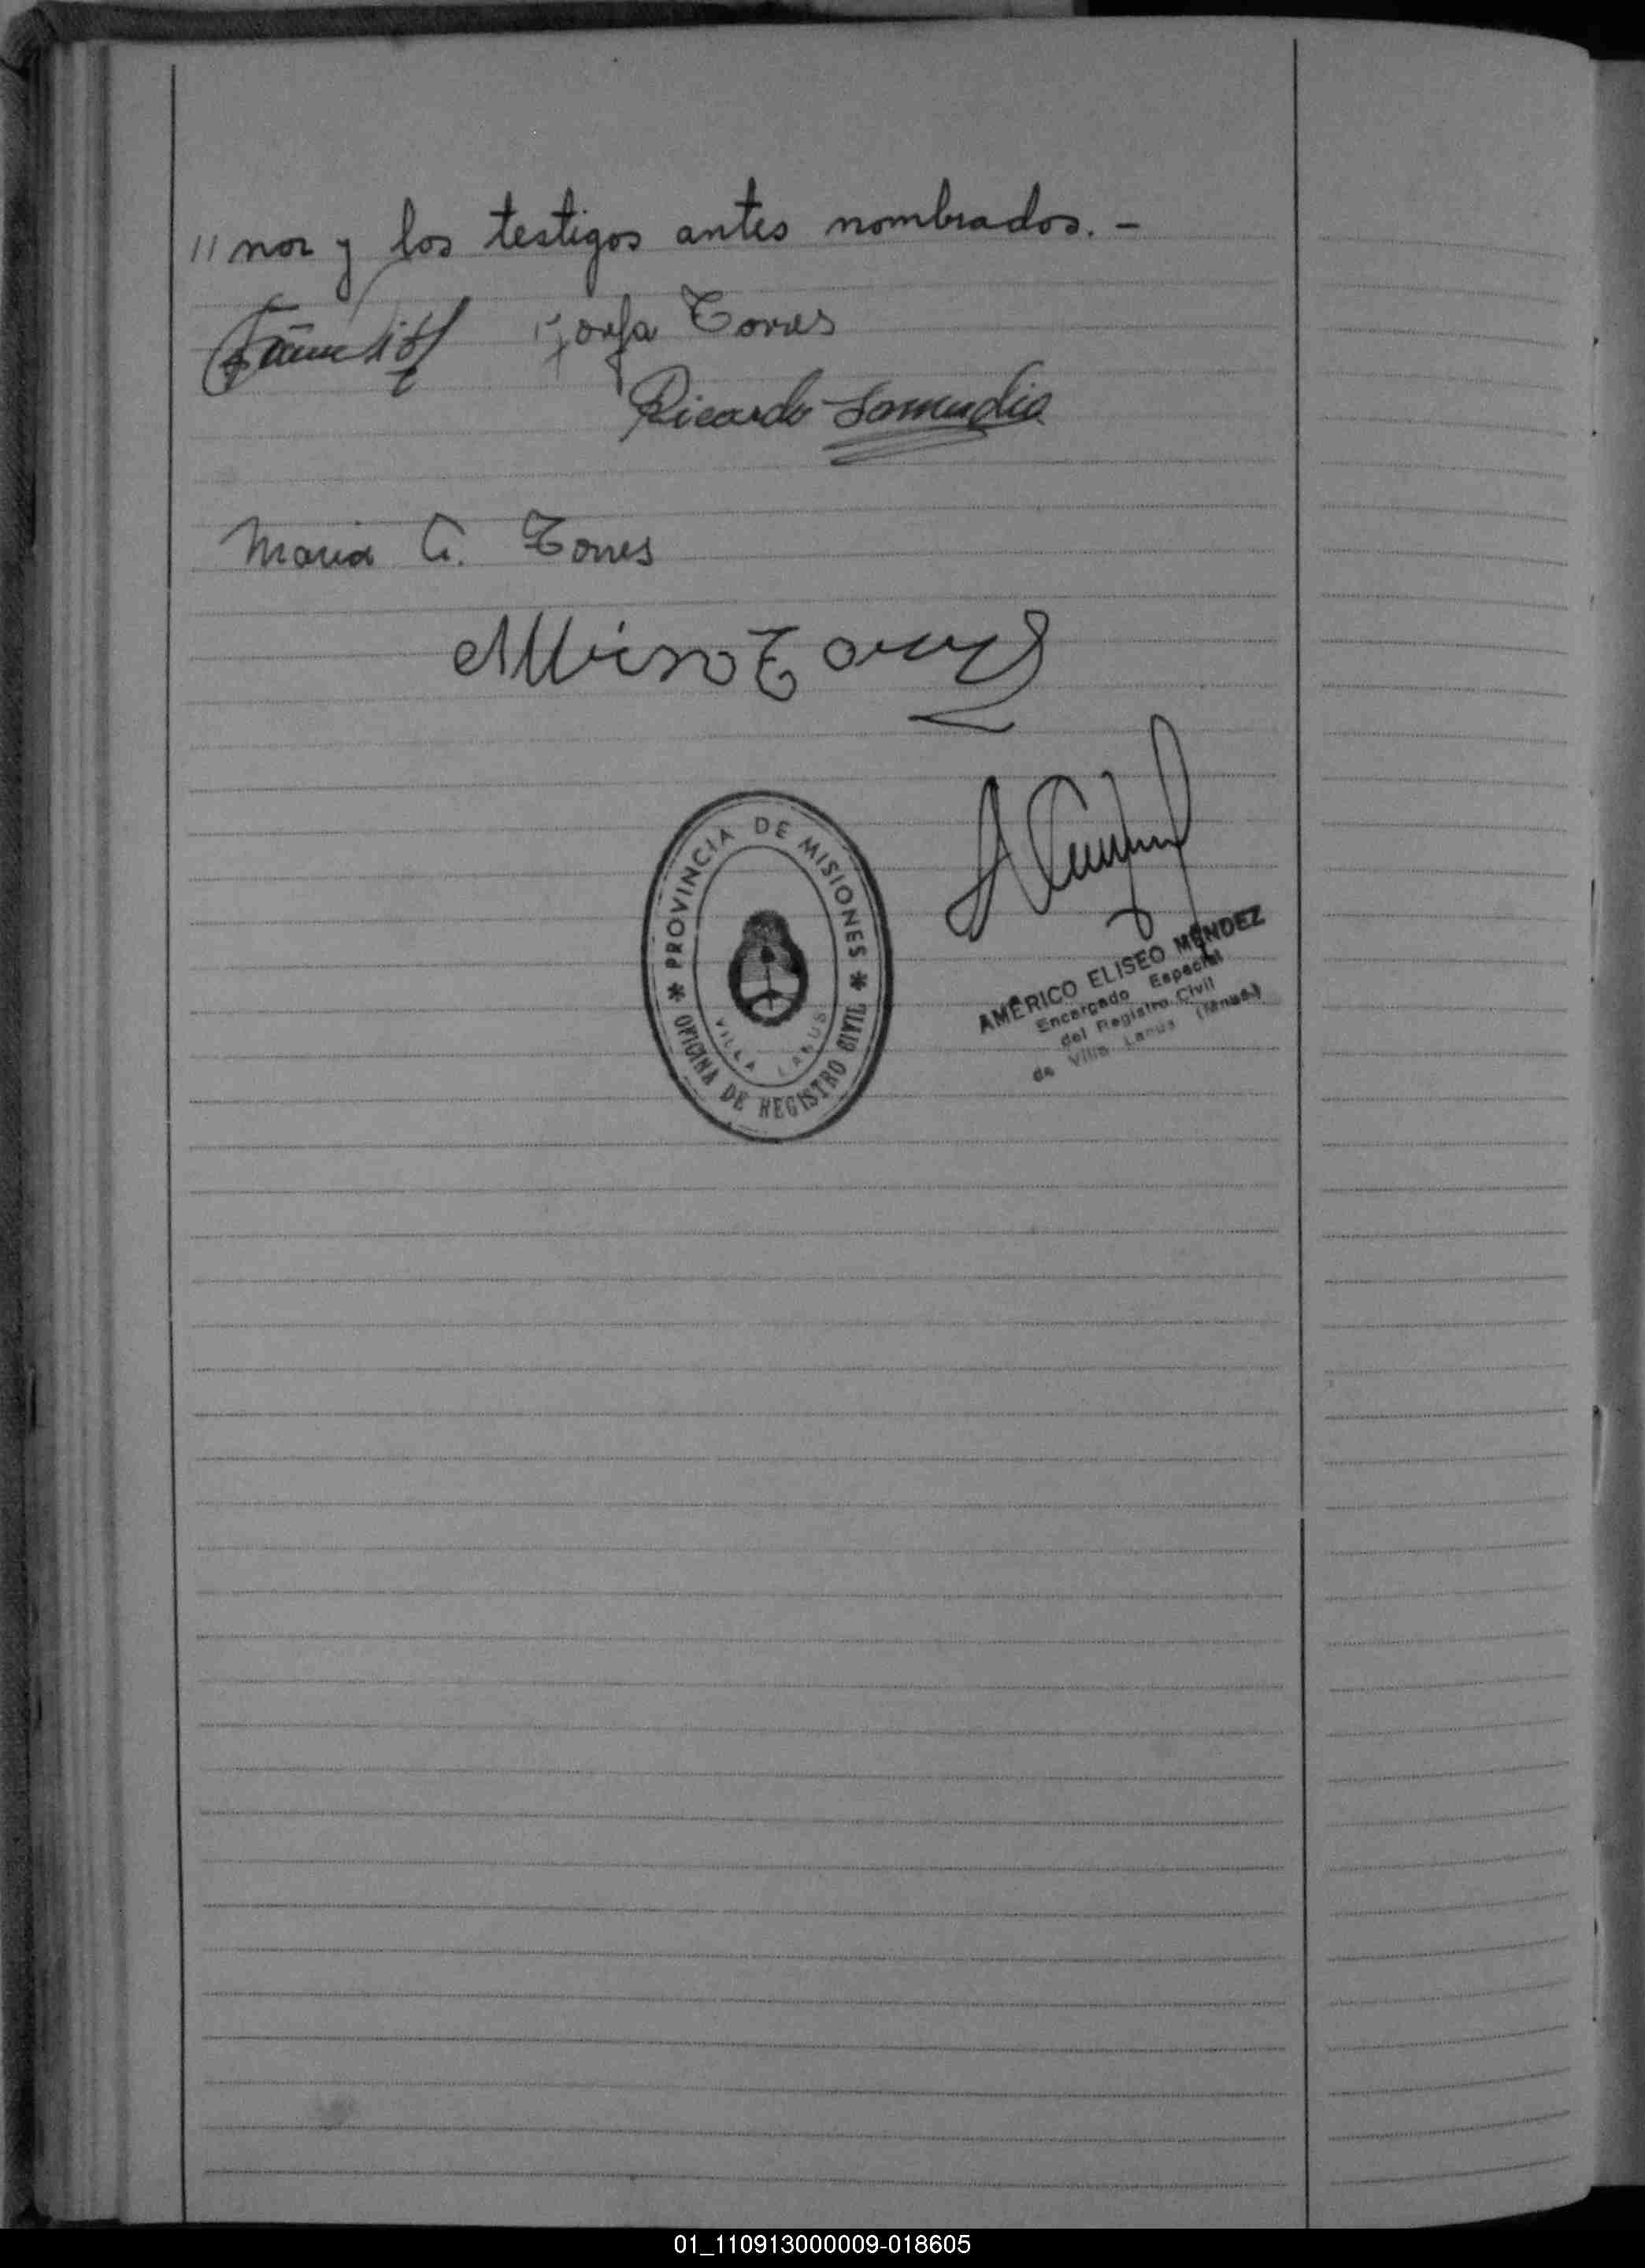 "nor y los testigos antes nombrados. -
Torres
Ricardo Samudio
Maria C. Torres
Albino Torres
PROVINCIA DE MISIONES
OFICINA DE REGISTRO CIVIL
VILLA LANUS
AMÉRICO ELISEO MÉNDEZ
Encargado Especial
del Registro Civil
de Villa Lanus (Mnes.)
01_110913000009-018605